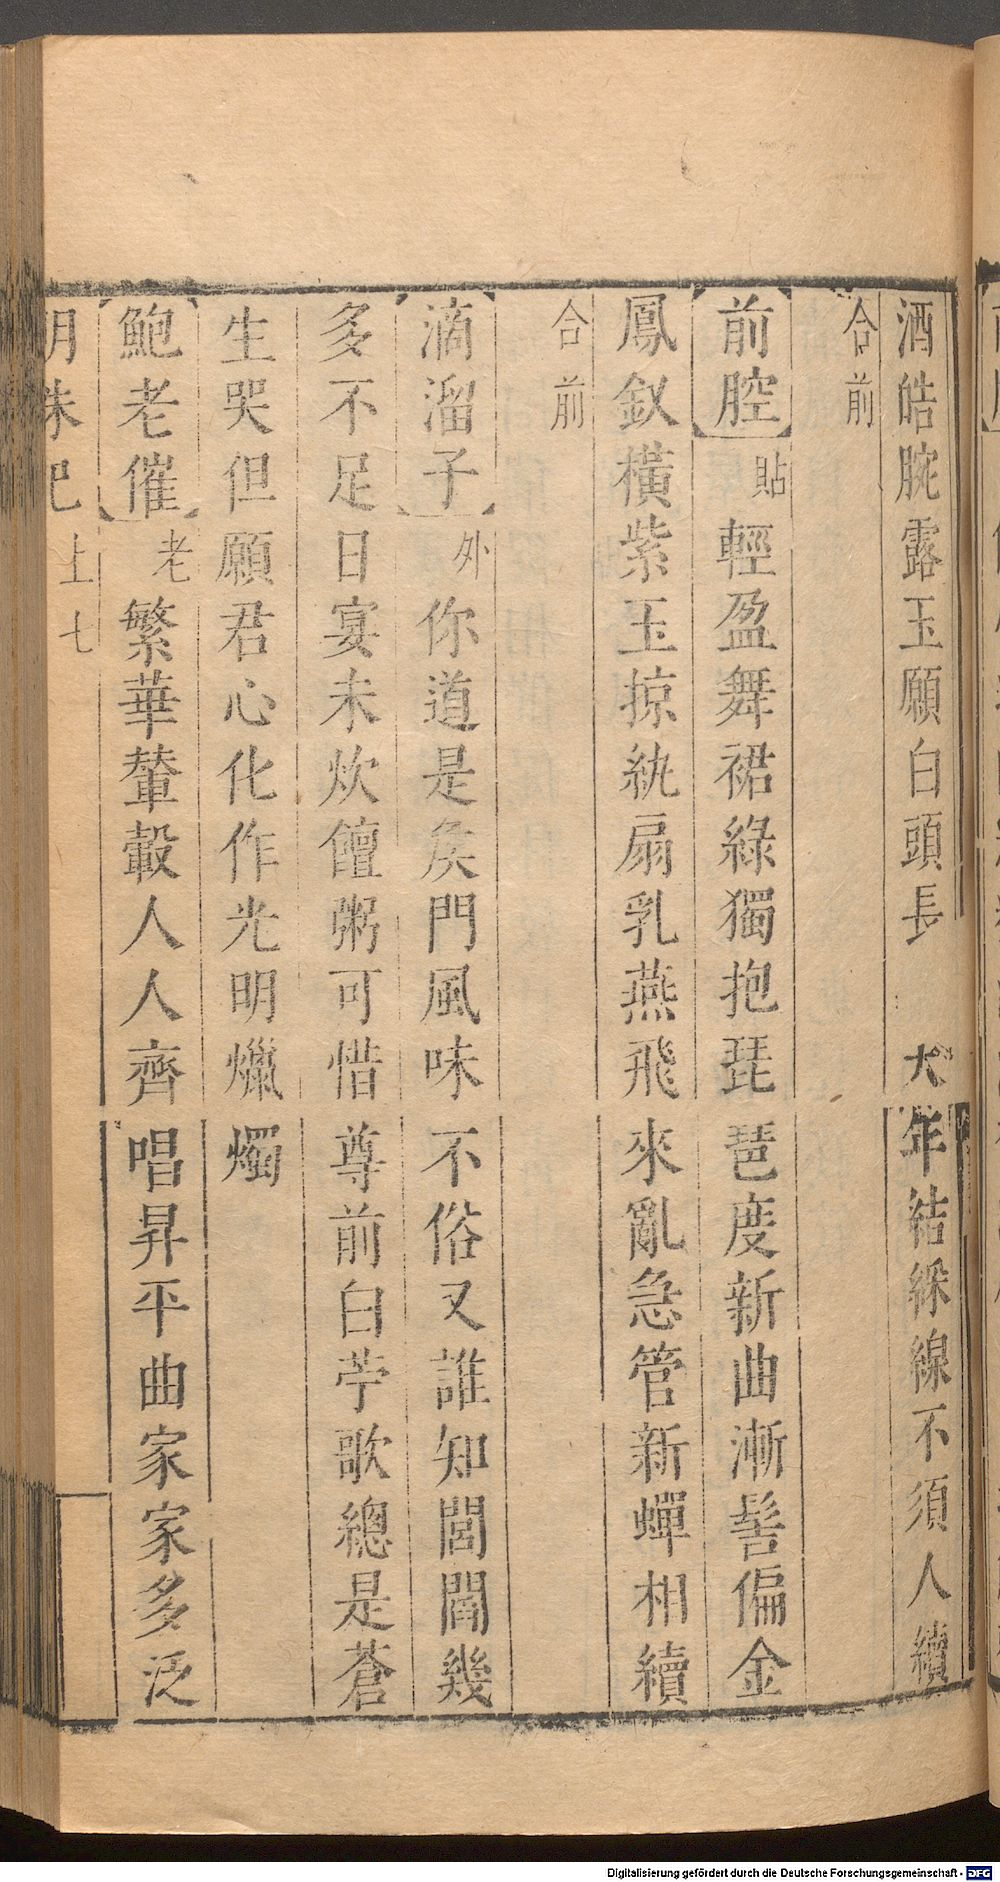 酒皓腕露玉願白頭長 大年結綵線不須人續
合前
前腔 貼 輕盈舞裙綠獨抱琵琶度新曲漸髻偏金
鳳釵橫紫玉掠紈扇乳燕飛來亂急管新蟬相續
合前
滴溜子 外 你道是矦門風味不俗又誰知閭閻幾
多不足日宴未炊饘粥可惜尊前白苧歌總是蒼
生哭但願君心化作光明爥燭
鮑老催 老 繁華輦轂人人齊唱昇平曲家家多泛
明朱巳 上 七
Digitalisierung gefördert durch die Deutsche Forschungsgemeinschaft - DFG